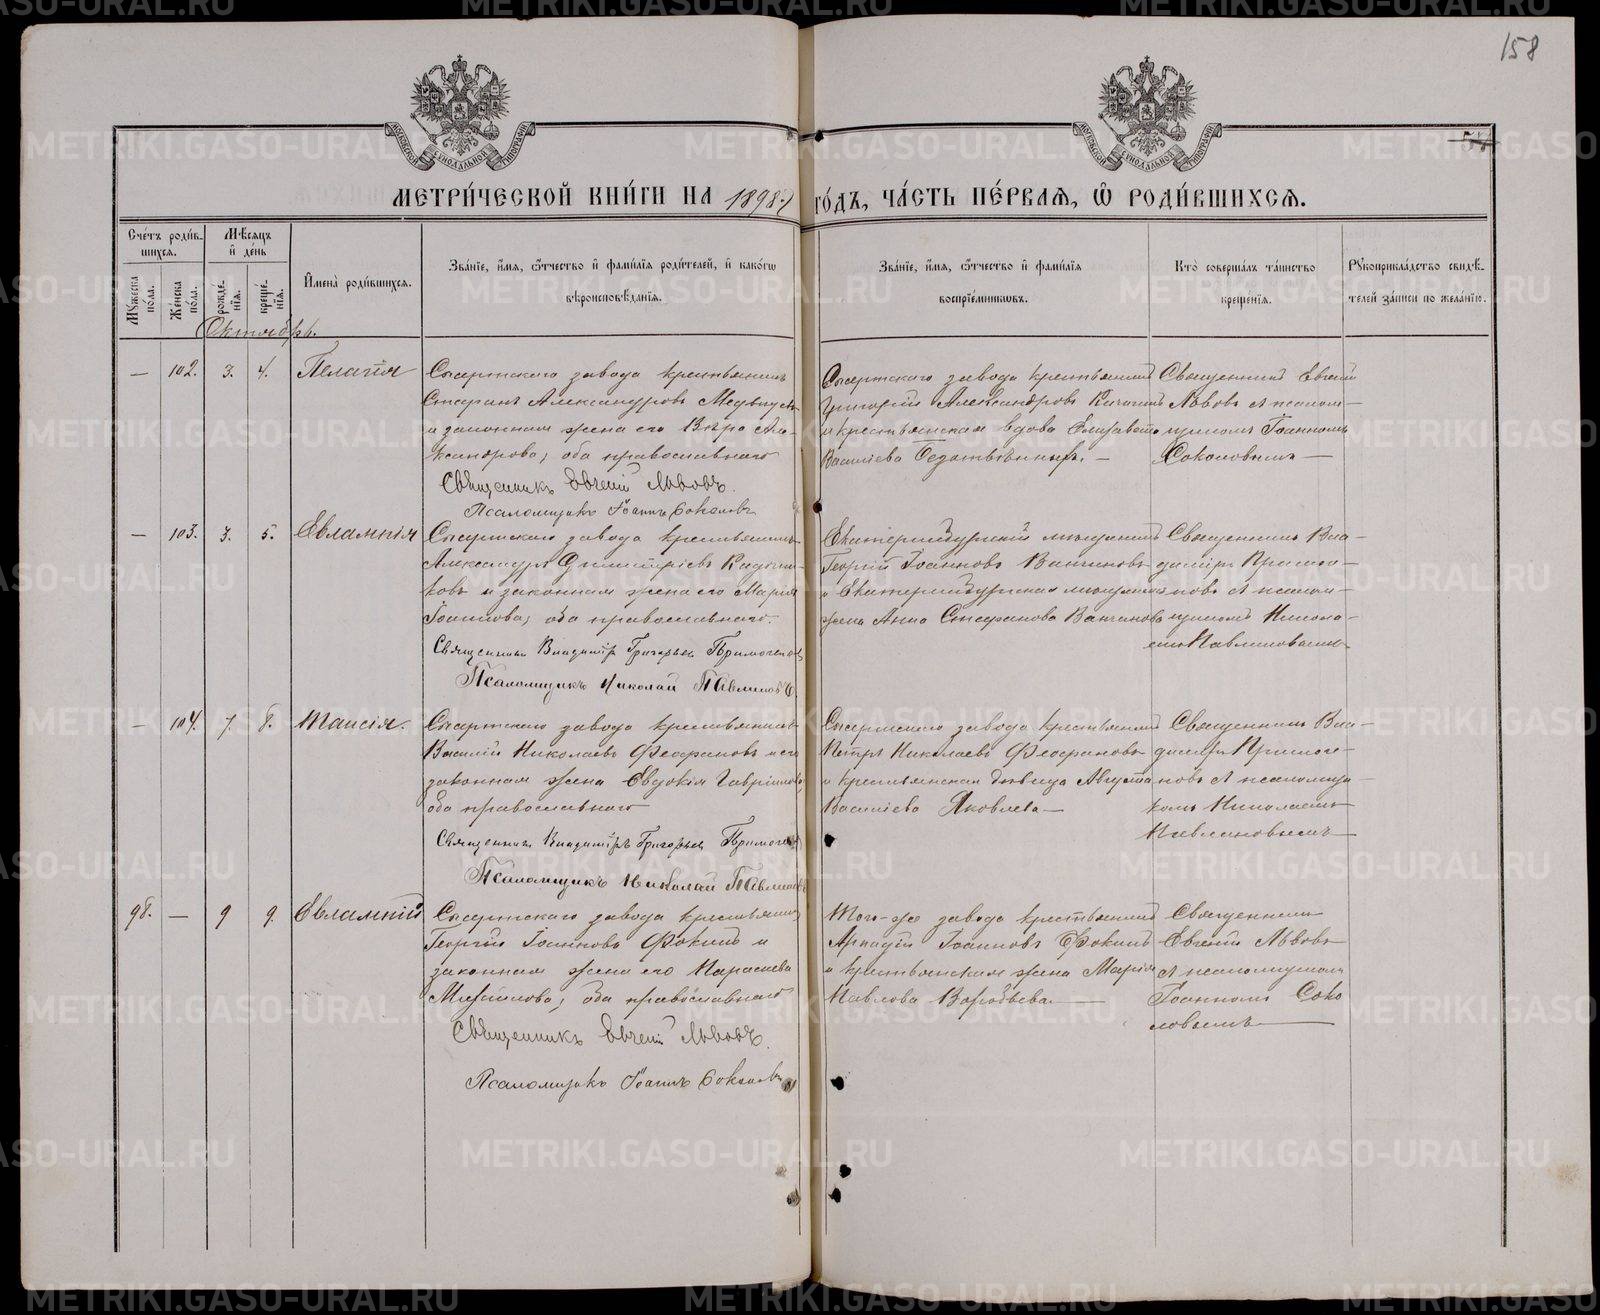 158
МЕТРИ́ЧЕСКОЙ КНИ́ГИ НА 1898 ГО́ДЪ, ЧА́СТЬ ПЕ́РВАЯ, Ѡ РОДИ́ВШИХСЯ.
Сче́тъ роди́в-
шихся.
Мꙋ́жеска
по́ла.
Же́нска
по́ла.
Мѣ́сяцъ
и҆ де́нь
рожде́-
нїя.
креще́-
нїя.
И҆мена̀ роди́вшихся.
Зва́нїе, и҆́мя, ѻ҆́тчество и҆ фами́лїя роди́телей, и҆ како́гѡ
вѣроисповѣ́данїя.
Зва́нїе, и҆́мя, ѻ҆́тчество и҆ фами́лїя
воспрїе́мниковъ.
Кто̀ соверша́лъ та́инство
креще́нїя.
Рꙋкоприкла́дство свидѣ́-
телей за́писи по жела́нїю.
Октябрь.
— 102. 3. 4. Пелагія
Сысертскаго завода крестьянинъ
Стефанъ Александровъ Медведевъ
и законная жена его Вера Але-
ксандрова, оба православнаго
Священникъ Евгеній Львовъ.
Псаломщикъ Іоаннъ Соколовъ
Сысертскаго завода крестьянинъ
Григорій Александровъ
и крестьянская вдова Елизавета
Василіева
Священникъ Евгеній
Львовъ съ псалом-
щикомъ Іоанномъ
Соколовымъ —
— 103. 3. 5. Евлампія
Сысертскаго завода крестьянинъ
Александръ Димитріевъ Кадочни-
ковъ и законная жена его Марія
Іоаннова, оба православнаго.
Священникъ Владиміръ Григорьев Примогеновъ
Псаломщикъ Николай Павлиновъ.
Екатеринбургскій мещанинъ
Георгій Іоанновъ Ванчиновъ
и Екатеринбургская мещанская
жена Анна Стефанова Ванчинова
Священникъ Вла-
диміръ Примоге-
новъ съ псалом-
щикомъ Никола-
емъ Павлиновымъ
— 104. 7. 8. Таисія.
Сысертскаго завода крестьянинъ
Василій Николаевъ Феофановъ и его
законная жена Евдокія Гавріилова,
оба православнаго
Священникъ Владиміръ Григорьев Примогеновъ
Псаломщикъ Николай Павлиновъ
Сысертскаго завода крестьянинъ
Петръ Николаевъ Феофановъ
и крестьянская девица Августа
Василіева Яковлева —
Священникъ Вла-
диміръ Примоге-
новъ съ псаломщи-
комъ Николаемъ
Павлиновымъ —
98. — 9 9. Евлампій
Сысертскаго завода крестьянинъ
Георгій Іоанновъ Фокинъ и
законная жена его Параскева
Михаилова, оба православнаго
Священникъ Евгеній Львовъ.
Псаломщикъ Іоаннъ Соколовъ
Того-же завода крестьянинъ
Аркадій Іоанновъ Фокинъ
и крестьянская жена Марія
Павлова Воробьева —
Священникъ
Евгеній Львовъ
съ псаломщикомъ
Іоанномъ Соко
ловымъ —
METRIKI.GASO-URAL.RU